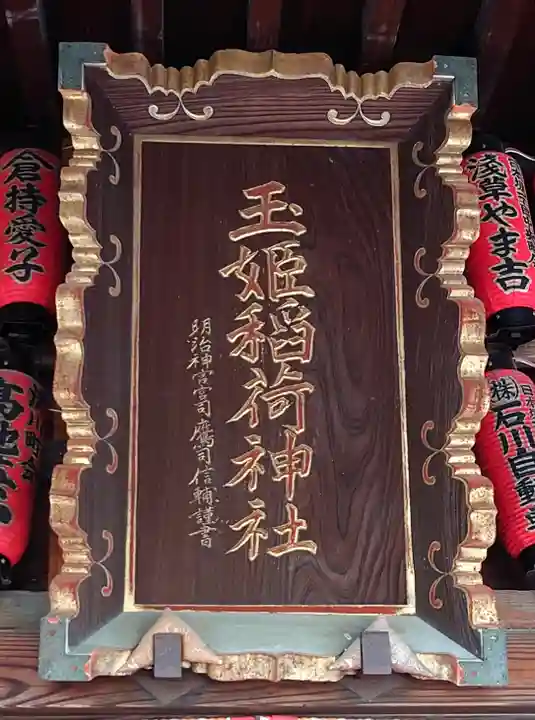 玉姫稲荷神社
明治神宮宮司鷹司信輔謹書
浅草やま吉
㈱石川自動
倉持愛子